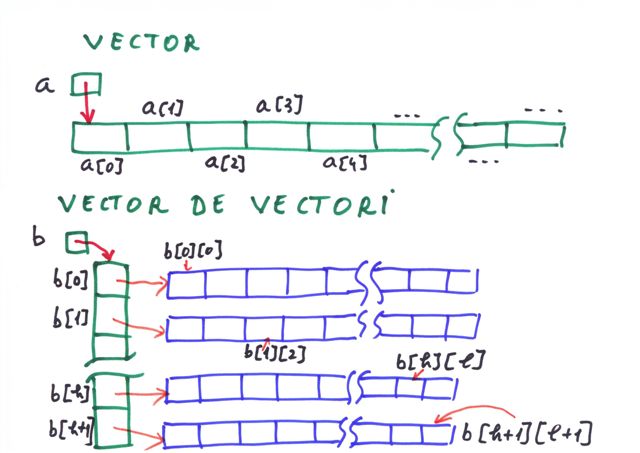 VECTOR
a
a[1] a[3] ... ...
a[0] a[2] a[4] ...
VECTOR DE VECTORI
b
b[0][0]
b[0]
b[1]
b[1][2]
b[k][l]
b[k]
b[k+1]
b[k+1][l+1]